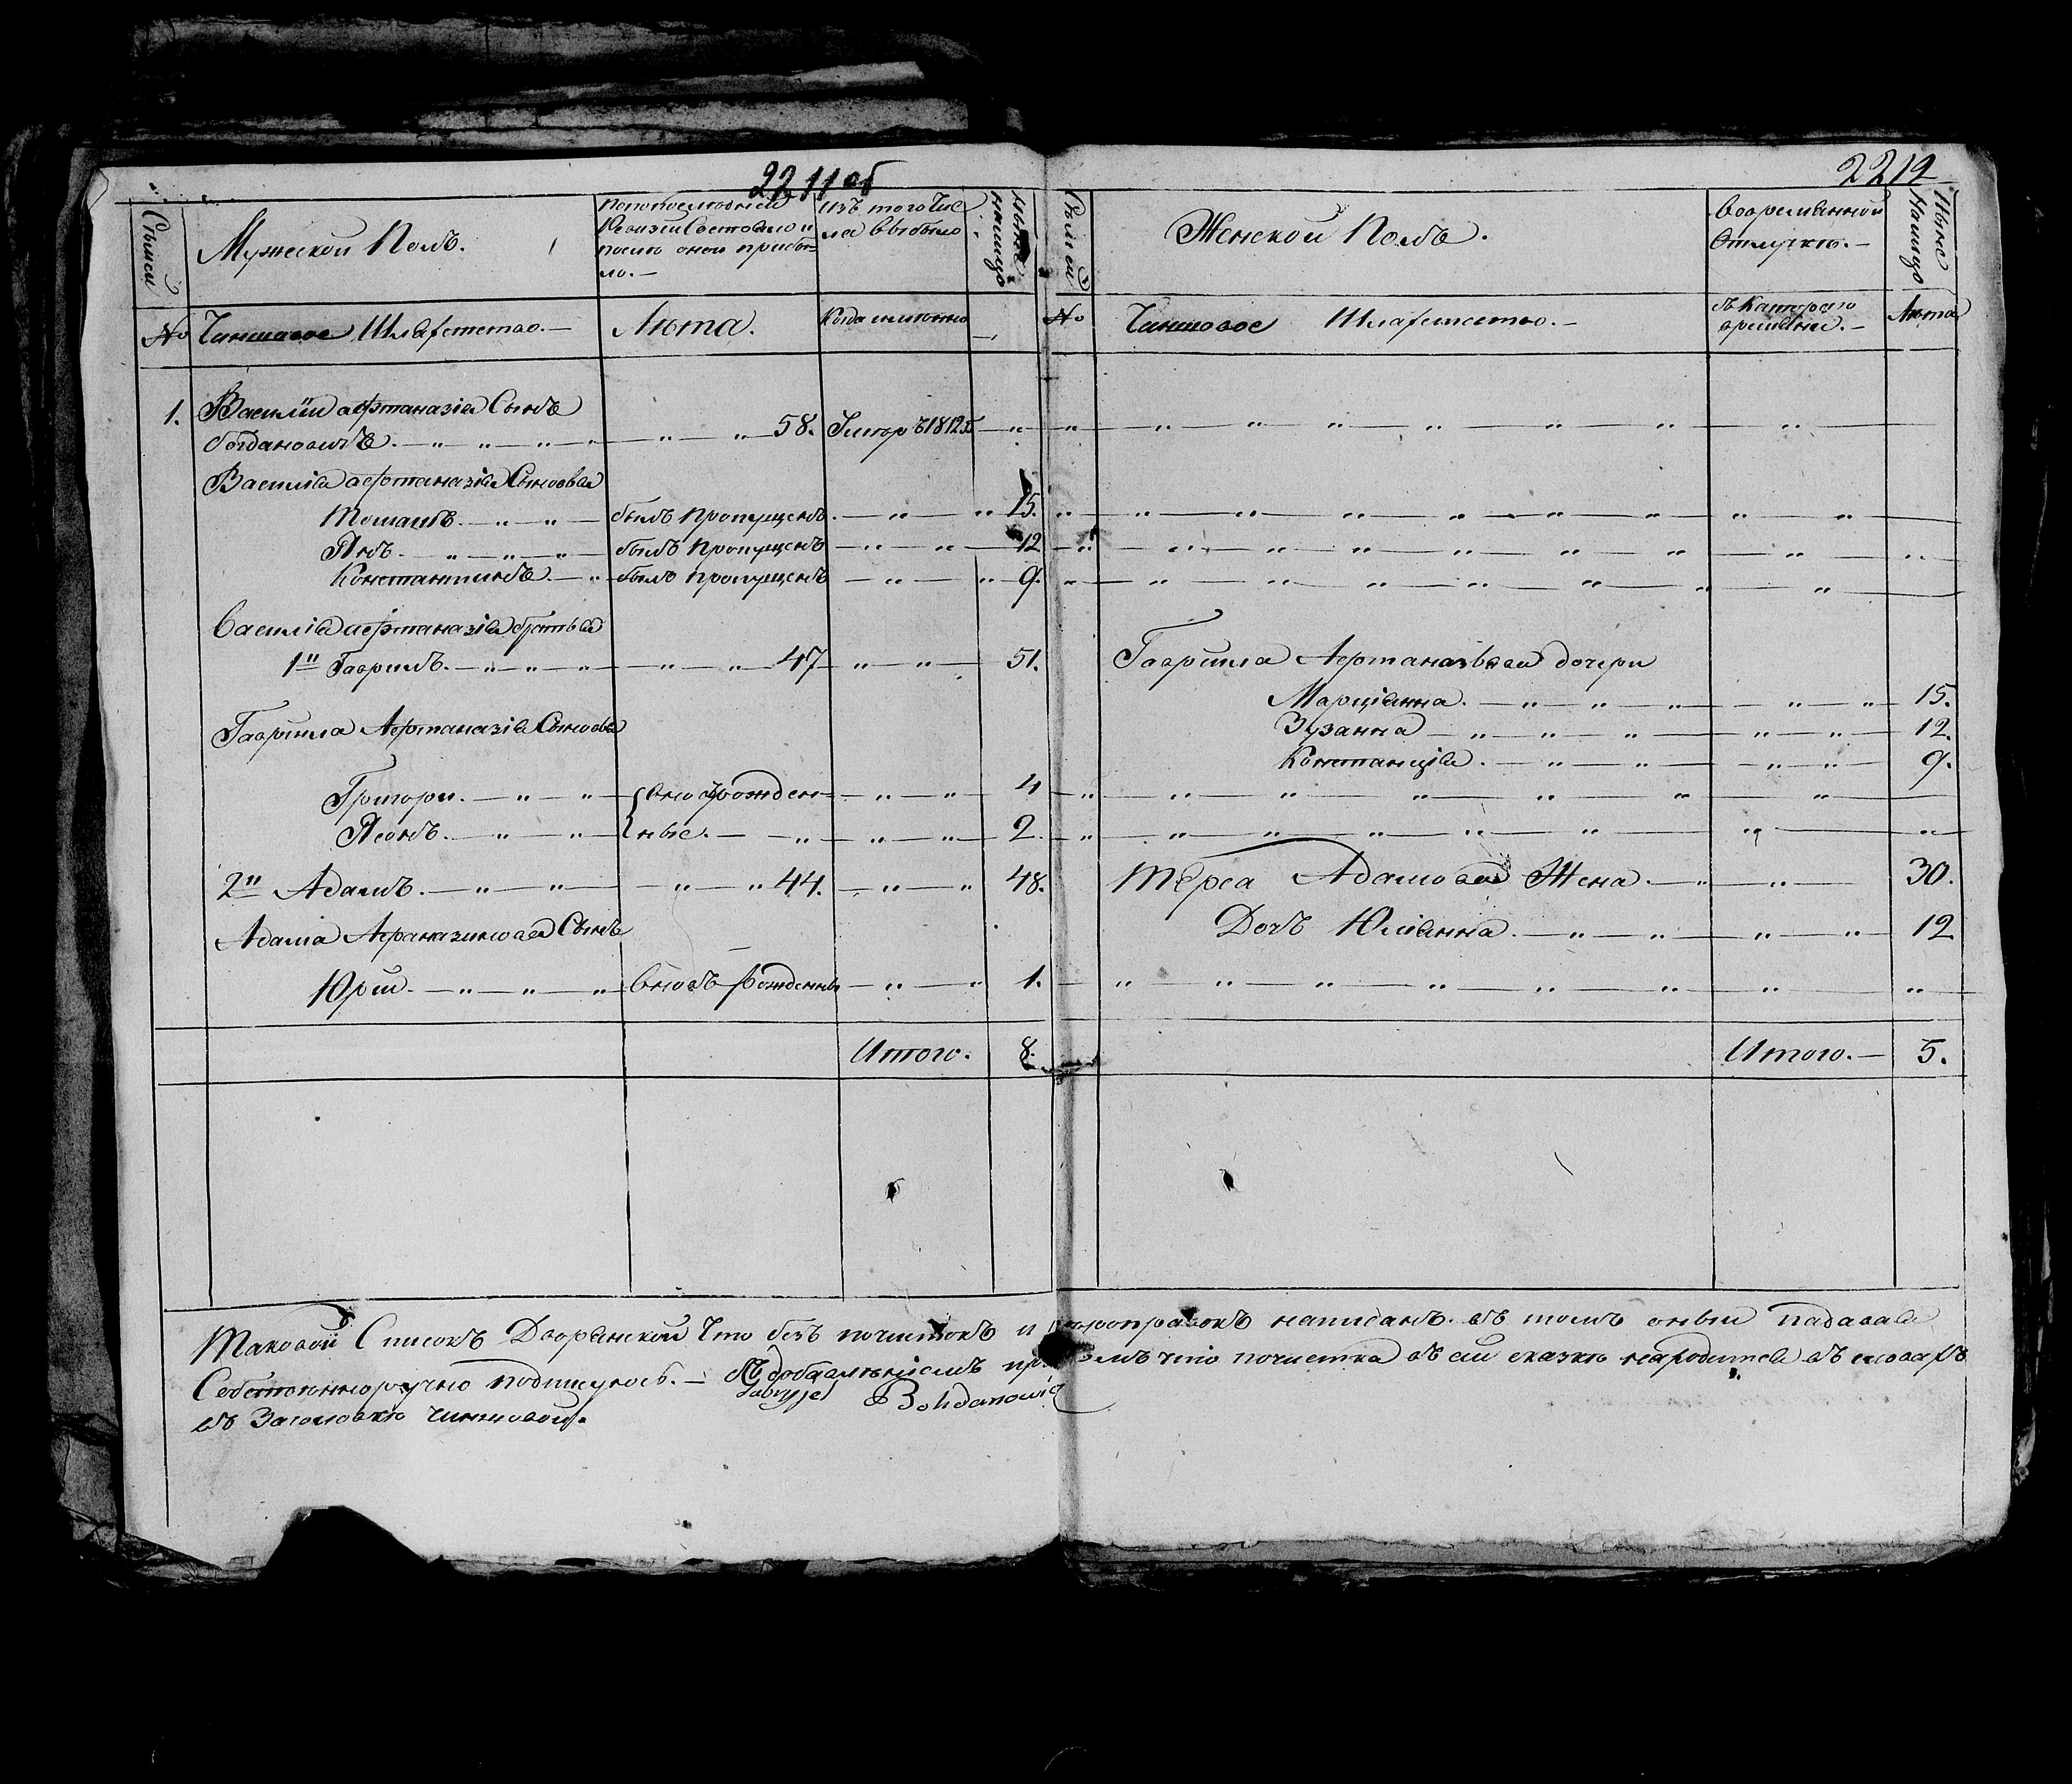 2211об
Съмеи
Мужеской Полъ.
Попопоследней
Ревизии Состояло и
после оной прибы-
ло.—
Изъ того Чис
ла выбыло
Ныне
налицо
№ Чиншовое Шляхетство.—
Лета.
Когда именно
1. Василiи афтаназiя Сынъ
богдановичъ. 58. Умеръ 1812
Василiя афтаназiя Сыновья
Томашъ. былъ Пропущенъ. 15.
Янъ. былъ Пропущенъ 12
Константинъ. былъ пропущенъ 9.
Василiя афтаназiя братья
1й Гаврилъ. 47 51.
Гаврила Афтаназiя Сыновья
Григори. вновьрожден- 4
Леонъ. ные. 2.
2й Адамъ. 44. 48.
Адама Афаназиева Сынъ
Юрiй. вновь рожденны 1.
Итого. 8.
2212
Съмеи
Женской Полъ.
Вовременной
Отлучке.—
Ныне
Налицо
№ Чиншовое Шляхетство.—
съ Катораго
времяни.—
Лета
Гаврила Афтаназьева дочери
Марцiянна. 15.
Зузанна 12.
Констанцiя. 9.
Тереса Адамова Жена. 30.
Дочъ Юлiянна. 12
Итого.— 5.
Таковой Списокъ Дворянской Что безъ почистокъ и попоправокъ написанъ. въ томъ оный падавая
Собственноручно подписуюсь.— Съ добавленiемъ при чемъ что почистка въ сей сказке народится въ словахъ
въ Заголовке чиншовой.
Gabryjel Bohdanowicz